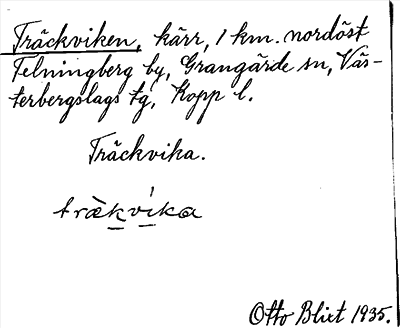 Träckviken, kärr, 1 km. nordöst
Telningberg by, Grangärde sn, Väs-
terbergslags tg, Kopp l.
Träckvika.
træ̀kvíka
Otto Blixt 1935.